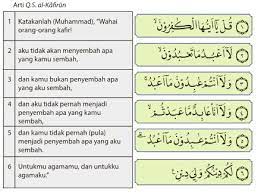 Arti Q.S. al-Kāfirūn
1 Katakanlah (Muhammad), "Wahai
orang-orang kafir!
قُلْ يٰٓاَيُّهَا الْكٰفِرُوْنَۙ ۝١
2 aku tidak akan menyembah apa
yang kamu sembah,
لَآ اَعْبُدُ مَا تَعْبُدُوْنَۙ ۝٢
3 dan kamu bukan penyembah apa
yang aku sembah,
وَلَآ اَنْتُمْ عٰبِدُوْنَ مَآ اَعْبُدُۚ ۝٣
4 dan aku tidak pernah menjadi
penyembah apa yang kamu
sembah,
وَلَآ اَنَا۠ عَابِدٌ مَّا عَبَدْتُّمْۙ ۝٤
5 dan kamu tidak pernah (pula)
menjadi penyembah apa yang aku
sembah.
وَلَآ اَنْتُمْ عٰبِدُوْنَ مَآ اَعْبُدُۗ ۝٥
6 Untukmu agamamu, dan untukku
agamaku."
لَكُمْ دِيْنُكُمْ وَلِيَ دِيْنِ ۝٦